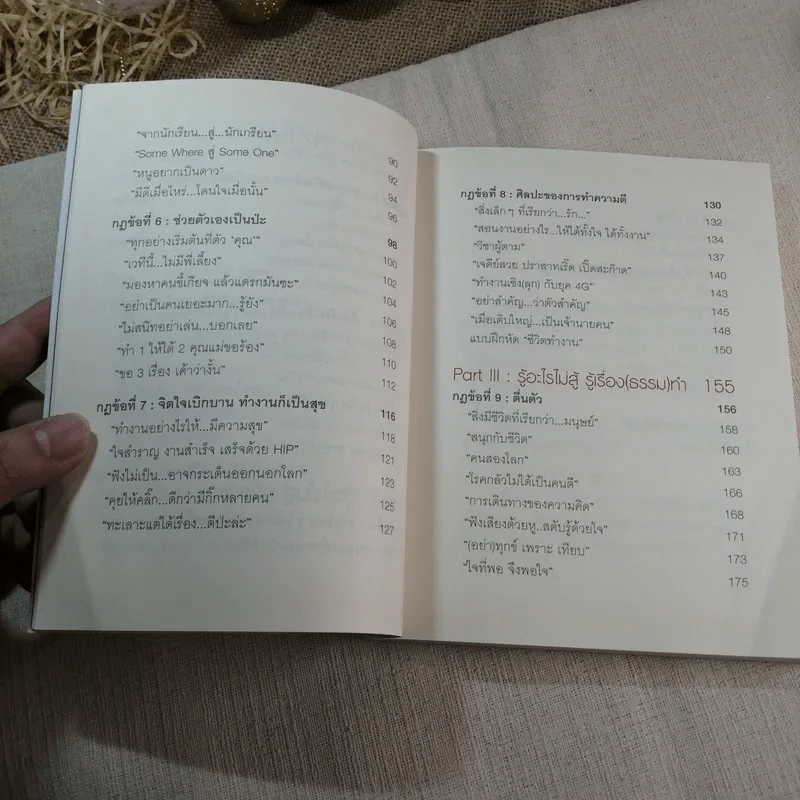 "จากนักเรียน...สู่...นักเกรียน" 90
"Some Where สู่ Some One" 92
"หนูอยากเป็นดาว" 94
"มีดีเมื่อไหร่...โดนใจเมื่อนั้น" 96
กฎข้อที่ 6 : ช่วยตัวเองเป็นป่ะ 98
"ทุกอย่างเริ่มต้นที่ตัว 'คุณ'" 100
"เวทีนี้...ไม่มีพี่เลี้ยง" 102
"มองหาคนขี้เกียจ แล้วแดรกมันซะ" 104
"อย่าเป็นคนเยอะมาก...รู้ยัง" 106
"ไม่สนิทอย่าเล่น...บอกเลย" 108
"ทำ 1 ให้ได้ 2 คุณแม่ขอร้อง" 110
"ขอ 3 เรื่อง เค้าว่างั้น" 112
กฎข้อที่ 7 : จิตใจเบิกบาน ทำงานก็เป็นสุข 116
"ทำงานอย่างไรให้...มีความสุข" 118
"ใจสำราญ งานสำเร็จ เสร็จด้วย HIP" 121
"ฟังไม่เป็น...อาจกระเด็นออกนอกโลก" 123
"คุยให้คลิ๊ก...ดีกว่ามีกิ๊กหลายคน" 125
"ทะเลาะแต่ได้เรื่อง...ดีป่ะล่ะ" 127
กฎข้อที่ 8 : ศิลปะของการทำความดี 130
"สิ่งเล็กๆ ที่เรียกว่า...รัก..." 132
"สอนงานอย่างไร...ให้ได้ทั้งใจ ได้ทั้งงาน" 134
"วิชาผู้ตาม" 137
"เจดีย์สวย ปราสาทเริ่ด เป๊ดสะก๊าด" 140
"ทำงานเชิง(ลุก) กับยุค 4G" 143
"อย่าสำคัญ...ว่าตัวสำคัญ" 145
"เมื่อเติบใหญ่...เป็นเจ้านายคน" 148
แบบฝึกหัด "ชีวิตทำงาน" 150
Part III : รู้อะไรไม่สู้ รู้เรื่อง(ธรรม)ทำ 155
กฎข้อที่ 9 : ตื่นตัว 156
"สิ่งมีชีวิตที่เรียกว่า...มนุษย์" 158
"สนุกกับชีวิต" 160
"คนสองโลก" 163
"โรคกลัวไม่ได้เป็นคนดี" 166
"การเดินทางของความคิด" 168
"ฟังเสียงด้วยหู..สดับรู้ด้วยใจ" 171
"(อย่า)ทุกข์ เพราะ เทียบ" 173
"ใจที่พอ จึงพอใจ" 175